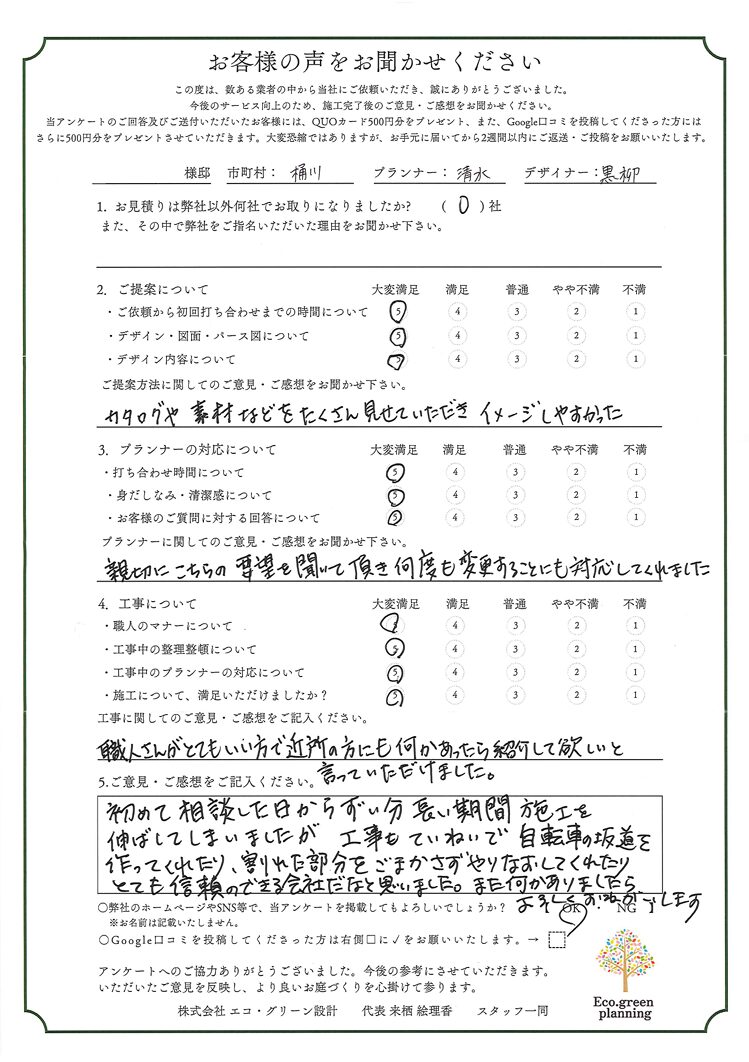 お客様の声をお聞かせください
この度は、数ある業者の中から当社にご依頼いただき、誠にありがとうございました。
今後のサービス向上のため、施工完了後のご意見・ご感想をお聞かせください。
当アンケートのご回答及びご送付いただいたお客様には、QUOカード500円分をプレゼント、また、Google口コミを投稿してくださった方には
さらに500円分をプレゼントさせていただきます。大変恐縮ではありますが、お手元に届いてから2週間以内にご返送・ご投稿をお願いいたします。
様邸 市町村： 桶川 プランナー： 清水 デザイナー：黒柳
1. お見積りは弊社以外何社でお取りになりましたか? ( 0 )社
また、その中で弊社をご指名いただいた理由をお聞かせ下さい。
2. ご提案について 大変満足 満足 普通 やや不満 不満
・ご依頼から初回打ち合わせまでの時間について 5 4 3 2 1
・デザイン・図面・パース図について 5 4 3 2 1
・デザイン内容について 5 4 3 2 1
ご提案方法に関してのご意見・ご感想をお聞かせ下さい。
カタログや 素材などをたくさん見せていただき イメージしやすかった
3. プランナーの対応について 大変満足 満足 普通 やや不満 不満
・打ち合わせ時間について 5 4 3 2 1
・身だしなみ・清潔感について 5 4 3 2 1
・お客様のご質問に対する回答について 5 4 3 2 1
プランナーに関してのご意見・ご感想をお聞かせ下さい。
親切にこちらの 要望を聞いて頂き何度も変更することにも対応してくれました
4. 工事について 大変満足 満足 普通 やや不満 不満
・職人のマナーについて 5 4 3 2 1
・工事中の整理整頓について 5 4 3 2 1
・工事中のプランナーの対応について 5 4 3 2 1
・施工について、満足いただけましたか？ 5 4 3 2 1
工事に関してのご意見・ご感想をご記入ください。
職人さんがとてもいい方で近所の方にも何かあったら紹介して欲しいと
言っていただけました。
5.ご意見・ご感想をご記入ください。
初めて相談した日からずい分 長い期間 施工を
伸ばしてしまいましたが 工事もていねいで 自転車の坂道を
作ってくれたり、割れた部分をごまかさずやりなおしてくれたり
とても信頼のできる会社だなと思いました。また何かありましたら
よろしくお願いします
○弊社のホームページやSNS等で、当アンケートを掲載してもよろしいでしょうか？ OK NG
※お名前は記載いたしません。
○Google口コミを投稿してくださった方は右側□に✓をお願いいたします。→
アンケートへのご協力ありがとうございました。今後の参考にさせていただきます。
いただいたご意見を反映し、より良いお庭づくりを心掛けて参ります。
株式会社 エコ・グリーン設計 代表 来栖 絵理香 スタッフ一同
Eco.green
planning